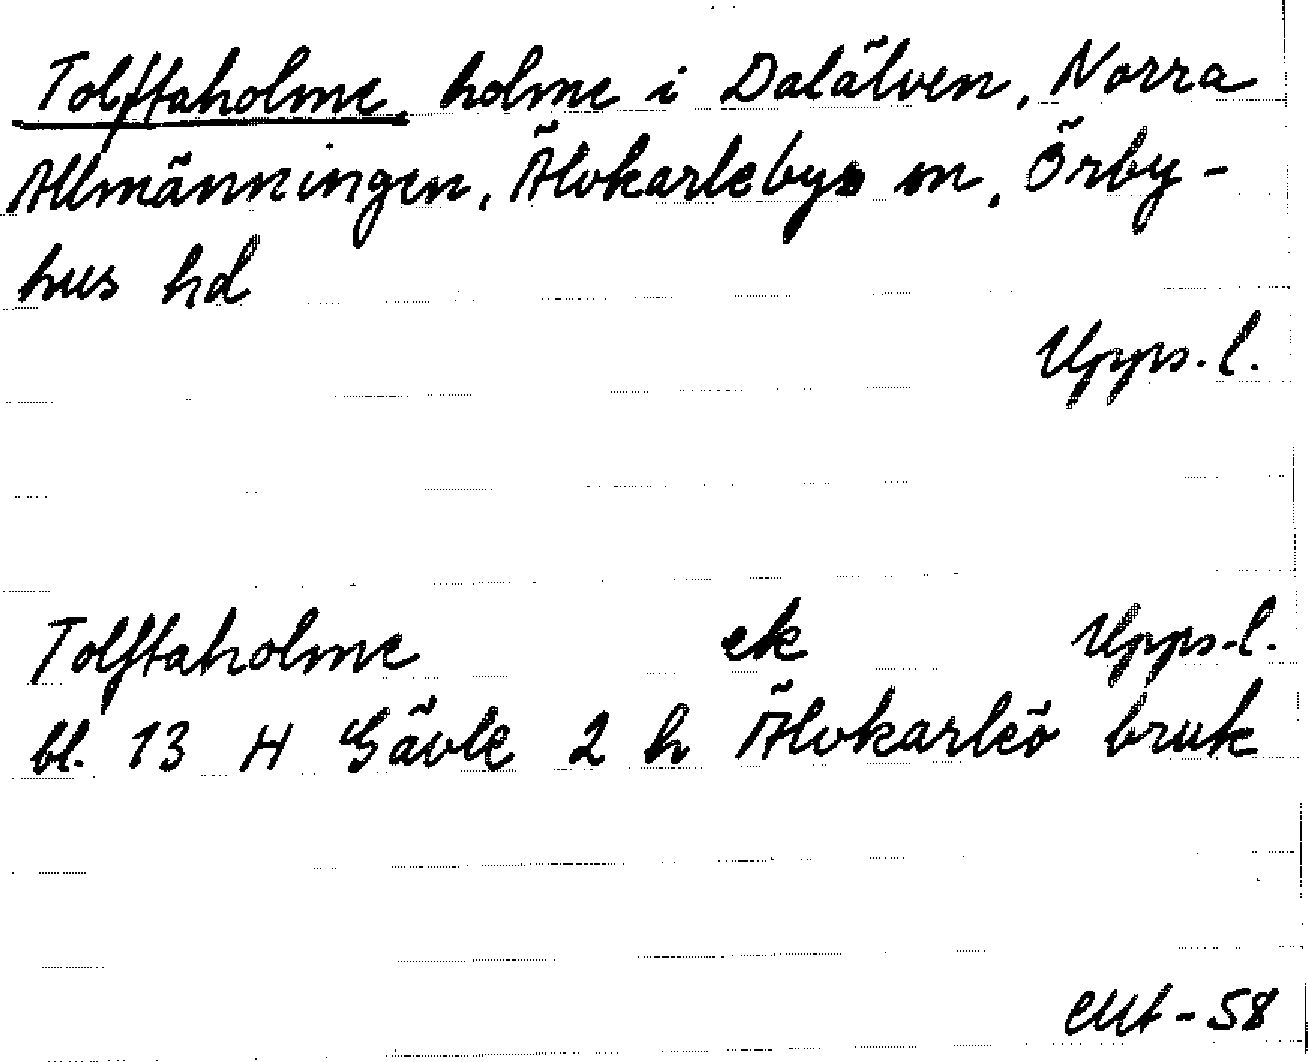 Tolftaholme, holme i Dalälven, Norra
Allmänningen, Älvkarlebys sn, Örby-
hus hd
Upps.l.
Tolftaholme ek Upps.l.
bl. 13 H Gävle 2 h Älvkarleö bruk
-58